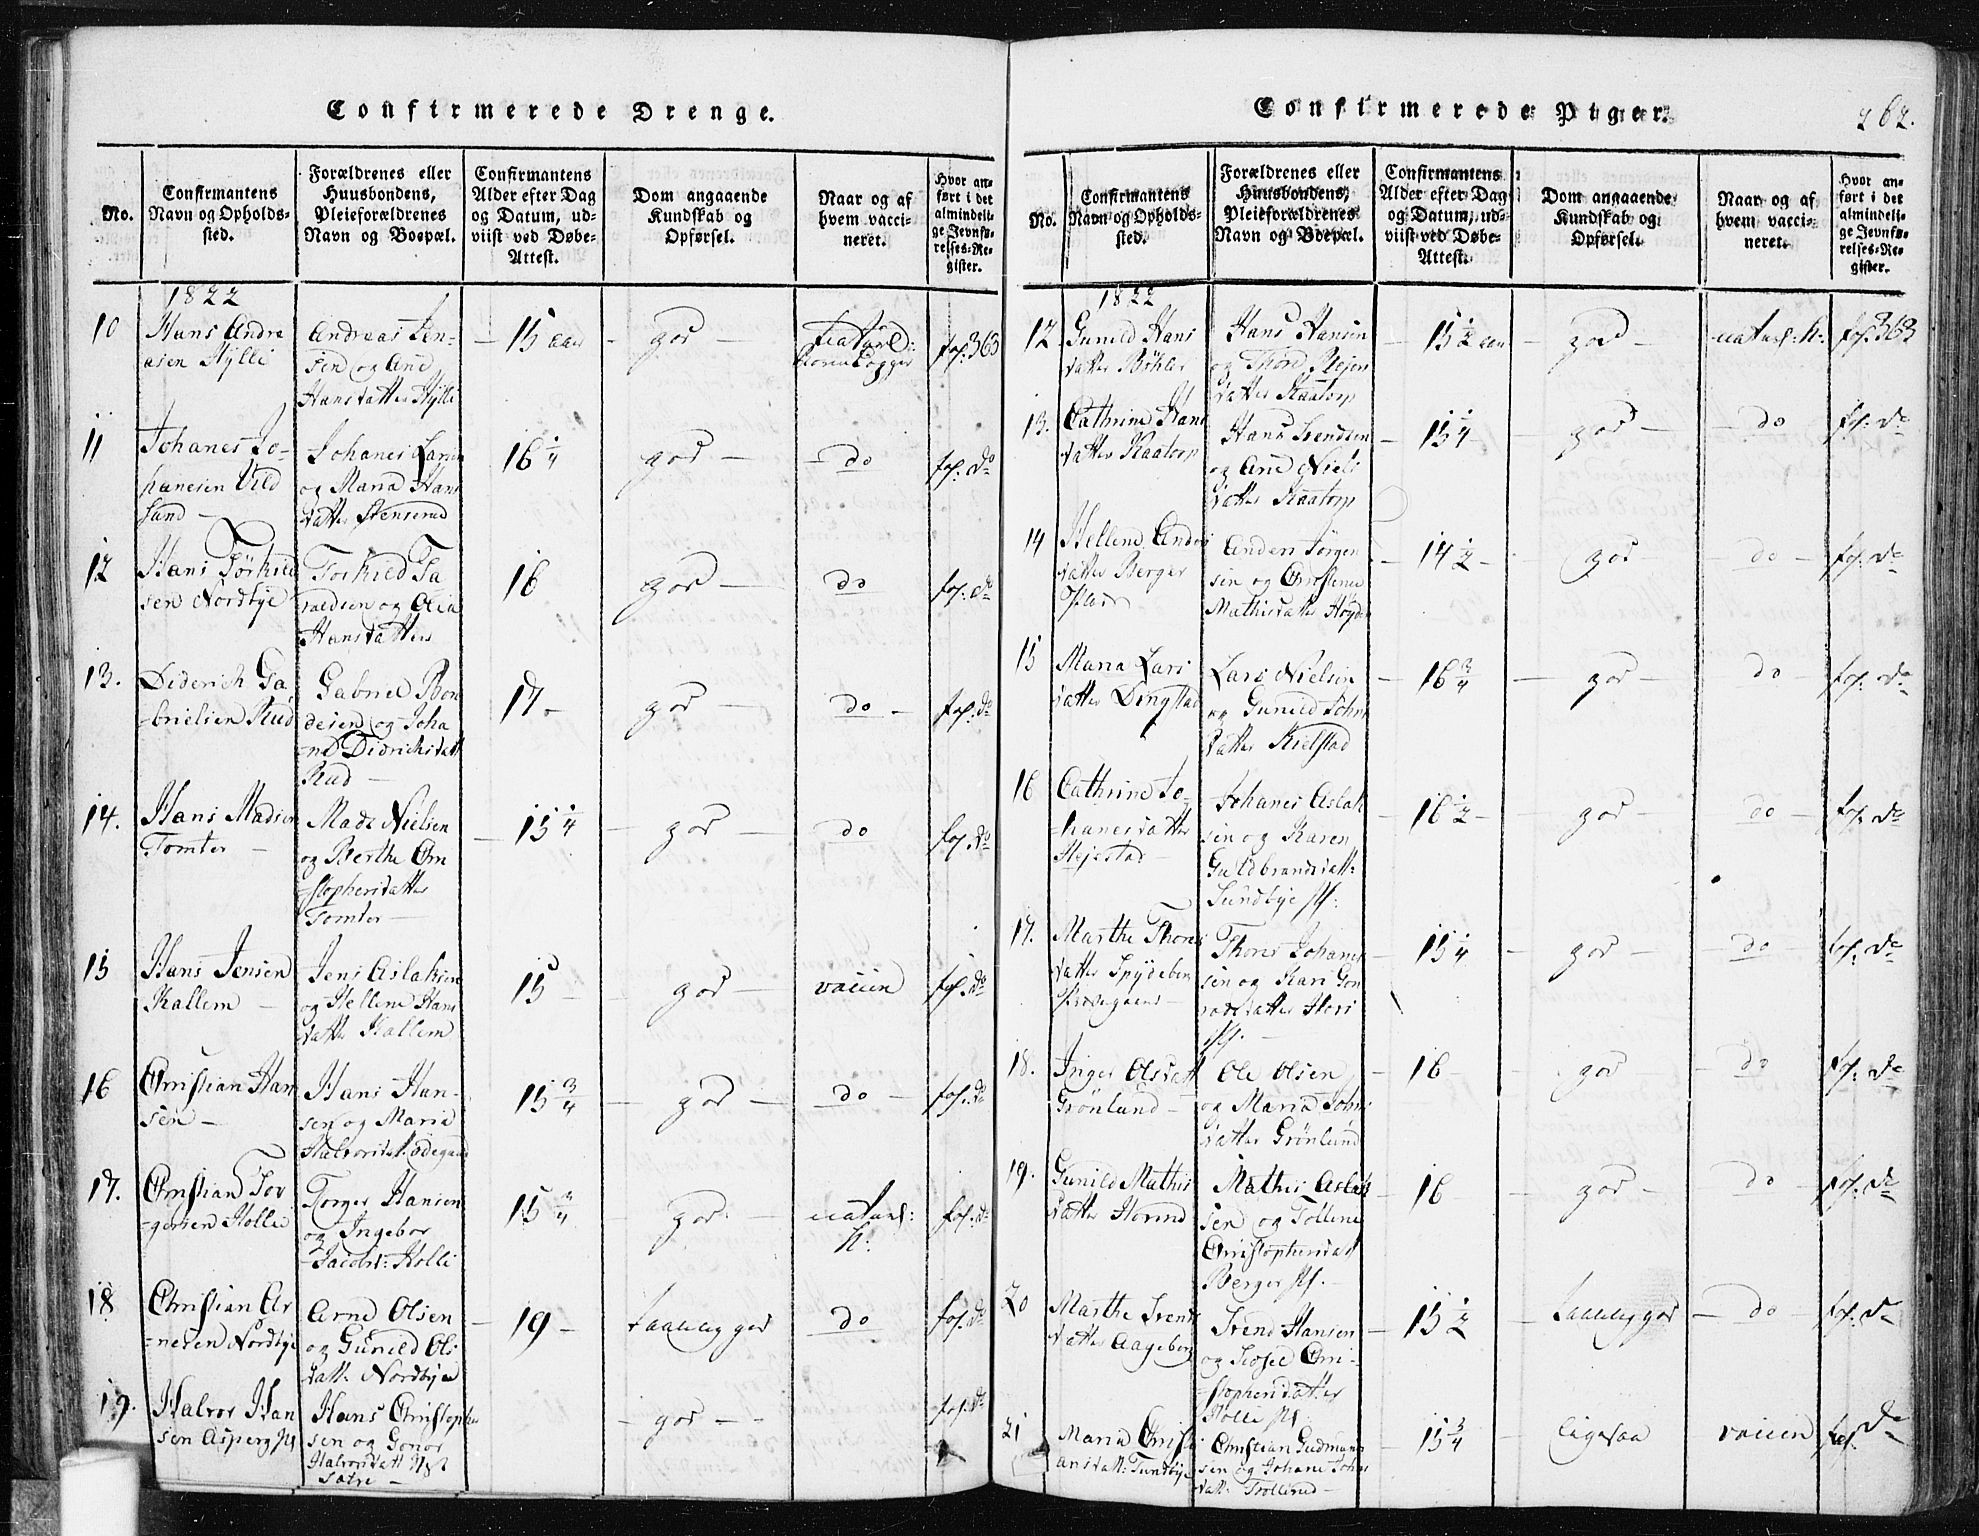 Confirmerede Drenge.
No.
Confirmantens Navn og Opholdssted.
Forældrenes eller Huusbondens, Pleieforældrenes Navn og Boepæl.
Confirmantens Alder efter Dag og Datum, udviist ved Døbe-Attest.
Dom angaaende Kundskab og Opførsel.
Naar og af hvem vaccineret.
Hvor anført i det almindelige Jevnførelses-Register.
1822
10 Hans Andreasen Hylli
Andreas Jensen og Ane Hansdatter Hylli
15 aar
god
naturl:
fol: 363
11 Johanes Johanesen Vild Sand
Johanes Larsen og Maria Hansdatter Stenserud
16 1/4
god
do
fol: do
12 Hans Torkildsen Nordbye
Torkild Taraldsen og Olia Hansdatter
16
god
do
fol: do
13. Diderich Gabrielsen Rud
Gabriel Bondesen og Johane Didrichsdatt Rud
17
god
do
fol: do
14. Hans Madsen Tomter
Mads Nielsen og Berthe Christophersdatter Tomter
15 1/4
god
do
fol: do
15 Hans Jensen Kallem
Jens Aslaksen og Hellene Hansdatter Kallem
15
god
vaccin
fol: do
16 Christian Hansen
Hans Hansen og Maria Halvorsdat: Ødegaard
15 3/4
god
do
fol: do
17. Christian Torgersen Holli
Torger Hansen og Ingebor Jacobsd: Holli
15
god
naturl: K:
fol: do
18 Christian Arnesen Nordbye
Arne Olsen og Gunild Olsdatt: Nordbye
19
taaleg god
do
fol: do
19. Halvor Hansen Asperg
Hans Christophersen og Gonor Halvorsdatt Sætre
god
fol: do
Confirmerede Piger.
262.
No.
Confirmantens Navn og Opholdssted.
Forældrenes eller Huusbondens, Pleieforældrenes Navn og Boepæl.
Confirmantens Alder efter Dag og Datum, udviist ved Døbe-Attest.
Dom angaaende Kundskab og Opførsel.
Naar og af hvem vaccineret.
Hvor anført i det almindelige Jevnførelses-Register.
1822
12 Gunild Hansdatter Bøhler
Hans Hansen og Thore Rejersdatter Kaatorp
15 1/2 aar
god
naturl: K:
fol: 363
13. Cathrine Hansdatter Kaatorp
Hans Svendsen og Ane Nielsdatter Kaatorp
15 1/4
god
do
fol: do
14 Hellene Andersdatter Berger
Anders Jørgensen og Christine Mathisdatter Høyden
14 1/2
god
do
fol: do
15 Maria Larsdatter Dingstad
Lars Nielsen og Gunild Johnsdatter Kielstad
16 3/4
god
do
fol: do
16 Cathrine Johanesdatter Hejestad
Johanes Aslaksen og Karen Guldbrandsdatt: Sundbye
16 1/2
god
do
fol: do
17. Marthe Thoresdatter Spydeberg Præstegaard
Thores Johanesen og Kari
15 1/4
god
do
fol: do
18. Inger Olsdatt Grønlund
Ole Olsen og Maria Johnsdatter Grønlund
16
god
do
fol: do
19. Gunild Mathisdatter
Mathis Aslaksen og Tollene Christophersdatt Berger
16
god
do
fol: do
20 Marthe Svendsdatter Aageberg
Svend Hansen og Christophersdatter Holli
15 1/2
taaleg god
do
fol: do
21 Maria Christiansdatt: Sundbye
Christian Gudmunsen og Johane Johnsdatt: Trollerud
15 3/4
ligesaa
vaccin
fol: do